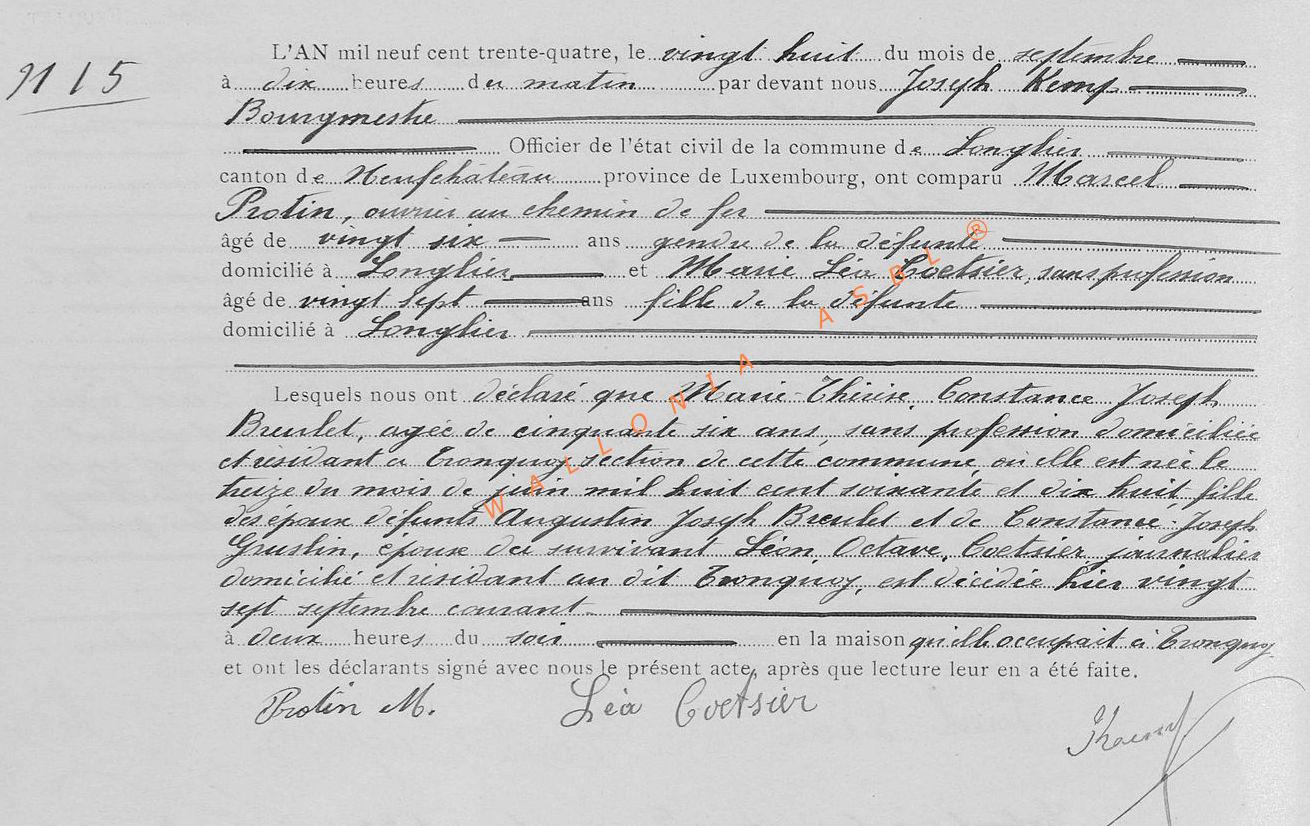 N 15
L'AN mil neuf cent trente-quatre, le vingt huit du mois de septembre
à dix heures du matin par devant nous Joseph Kemp
Bourgmestre
Officier de l'état civil de la commune de Longlier
canton de Neufchâteau province de Luxembourg, ont comparu Marcel
Protin, ouvrier au chemin de fer
âgé de vingt six ans gendre de la défunte
domicilié à Longlier et Marie Léa Coetsier, sans profession
âgé de vingt sept ans fille de la défunte
domicilié à Longlier
Lesquels nous ont déclaré que Marie-Thérèse, Constance Joseph
Breulet, agée de cinquante six ans, sans profession domiciliée
et résidant à Tronquoy section de cette commune, où elle est née le
treize du mois de juin mil huit cent soixante et dix huit, fille
des époux défunts Augustin Joseph Breulet et de Constance-Joseph
Gruslin, épouse du survivant Léon, Octave, Coetsier journalier
domicilié et résidant au dit Tronquoy, est décédée hier vingt
sept septembre courant
à deux heures du soir en la maison qu'elle occupait à Tronquoy
et ont les déclarants signé avec nous le présent acte, après que lecture leur en a été faite.
Protin M. Léa Coetsier
WALLONIA ASBL ®